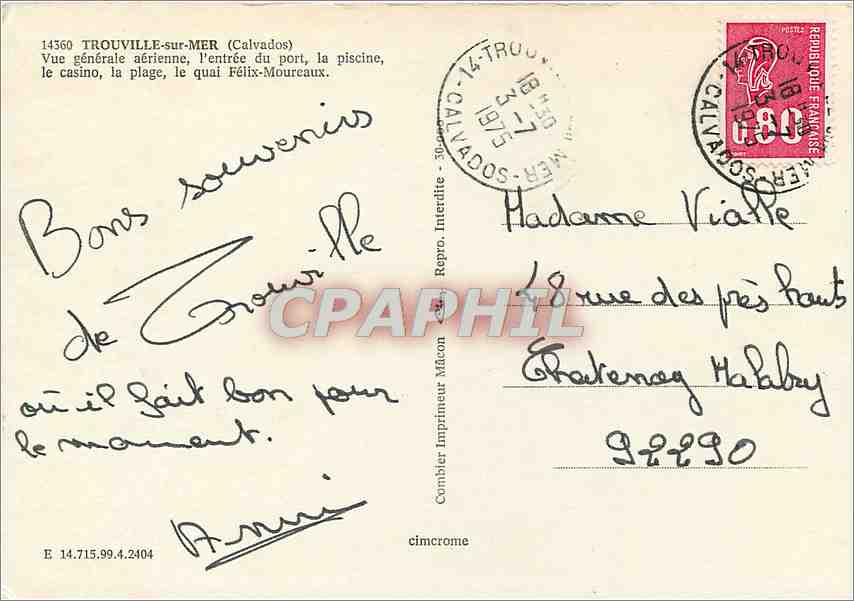 14360 TROUVILLE-sur-MER (Calvados)
Vue générale aérienne, l'entrée du port, la piscine,
le casino, la plage, le quai Félix-Moureaux.
Bons souvenirs
de Trouville
où il fait bon pour
le moment.
E 14.715.99.4.2404
Combier Imprimeur Mâcon
Repro. Interdite - 30-
cimcrome
14-TROU
MER
CALVADOS
18H30
3-7
1975
POSTES
REPUBLIQUE FRANÇAISE
0.80
14-TROU
MER
CALVADOS
18H30
3-7
1975
Madame Vialle
48 rue des près hauts
Chatenay Malabry
92290
CPAPHIL